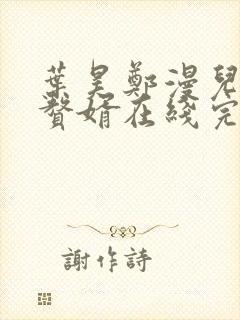 葉昊鄭漫兒
贅婿在綫完
謝作詩